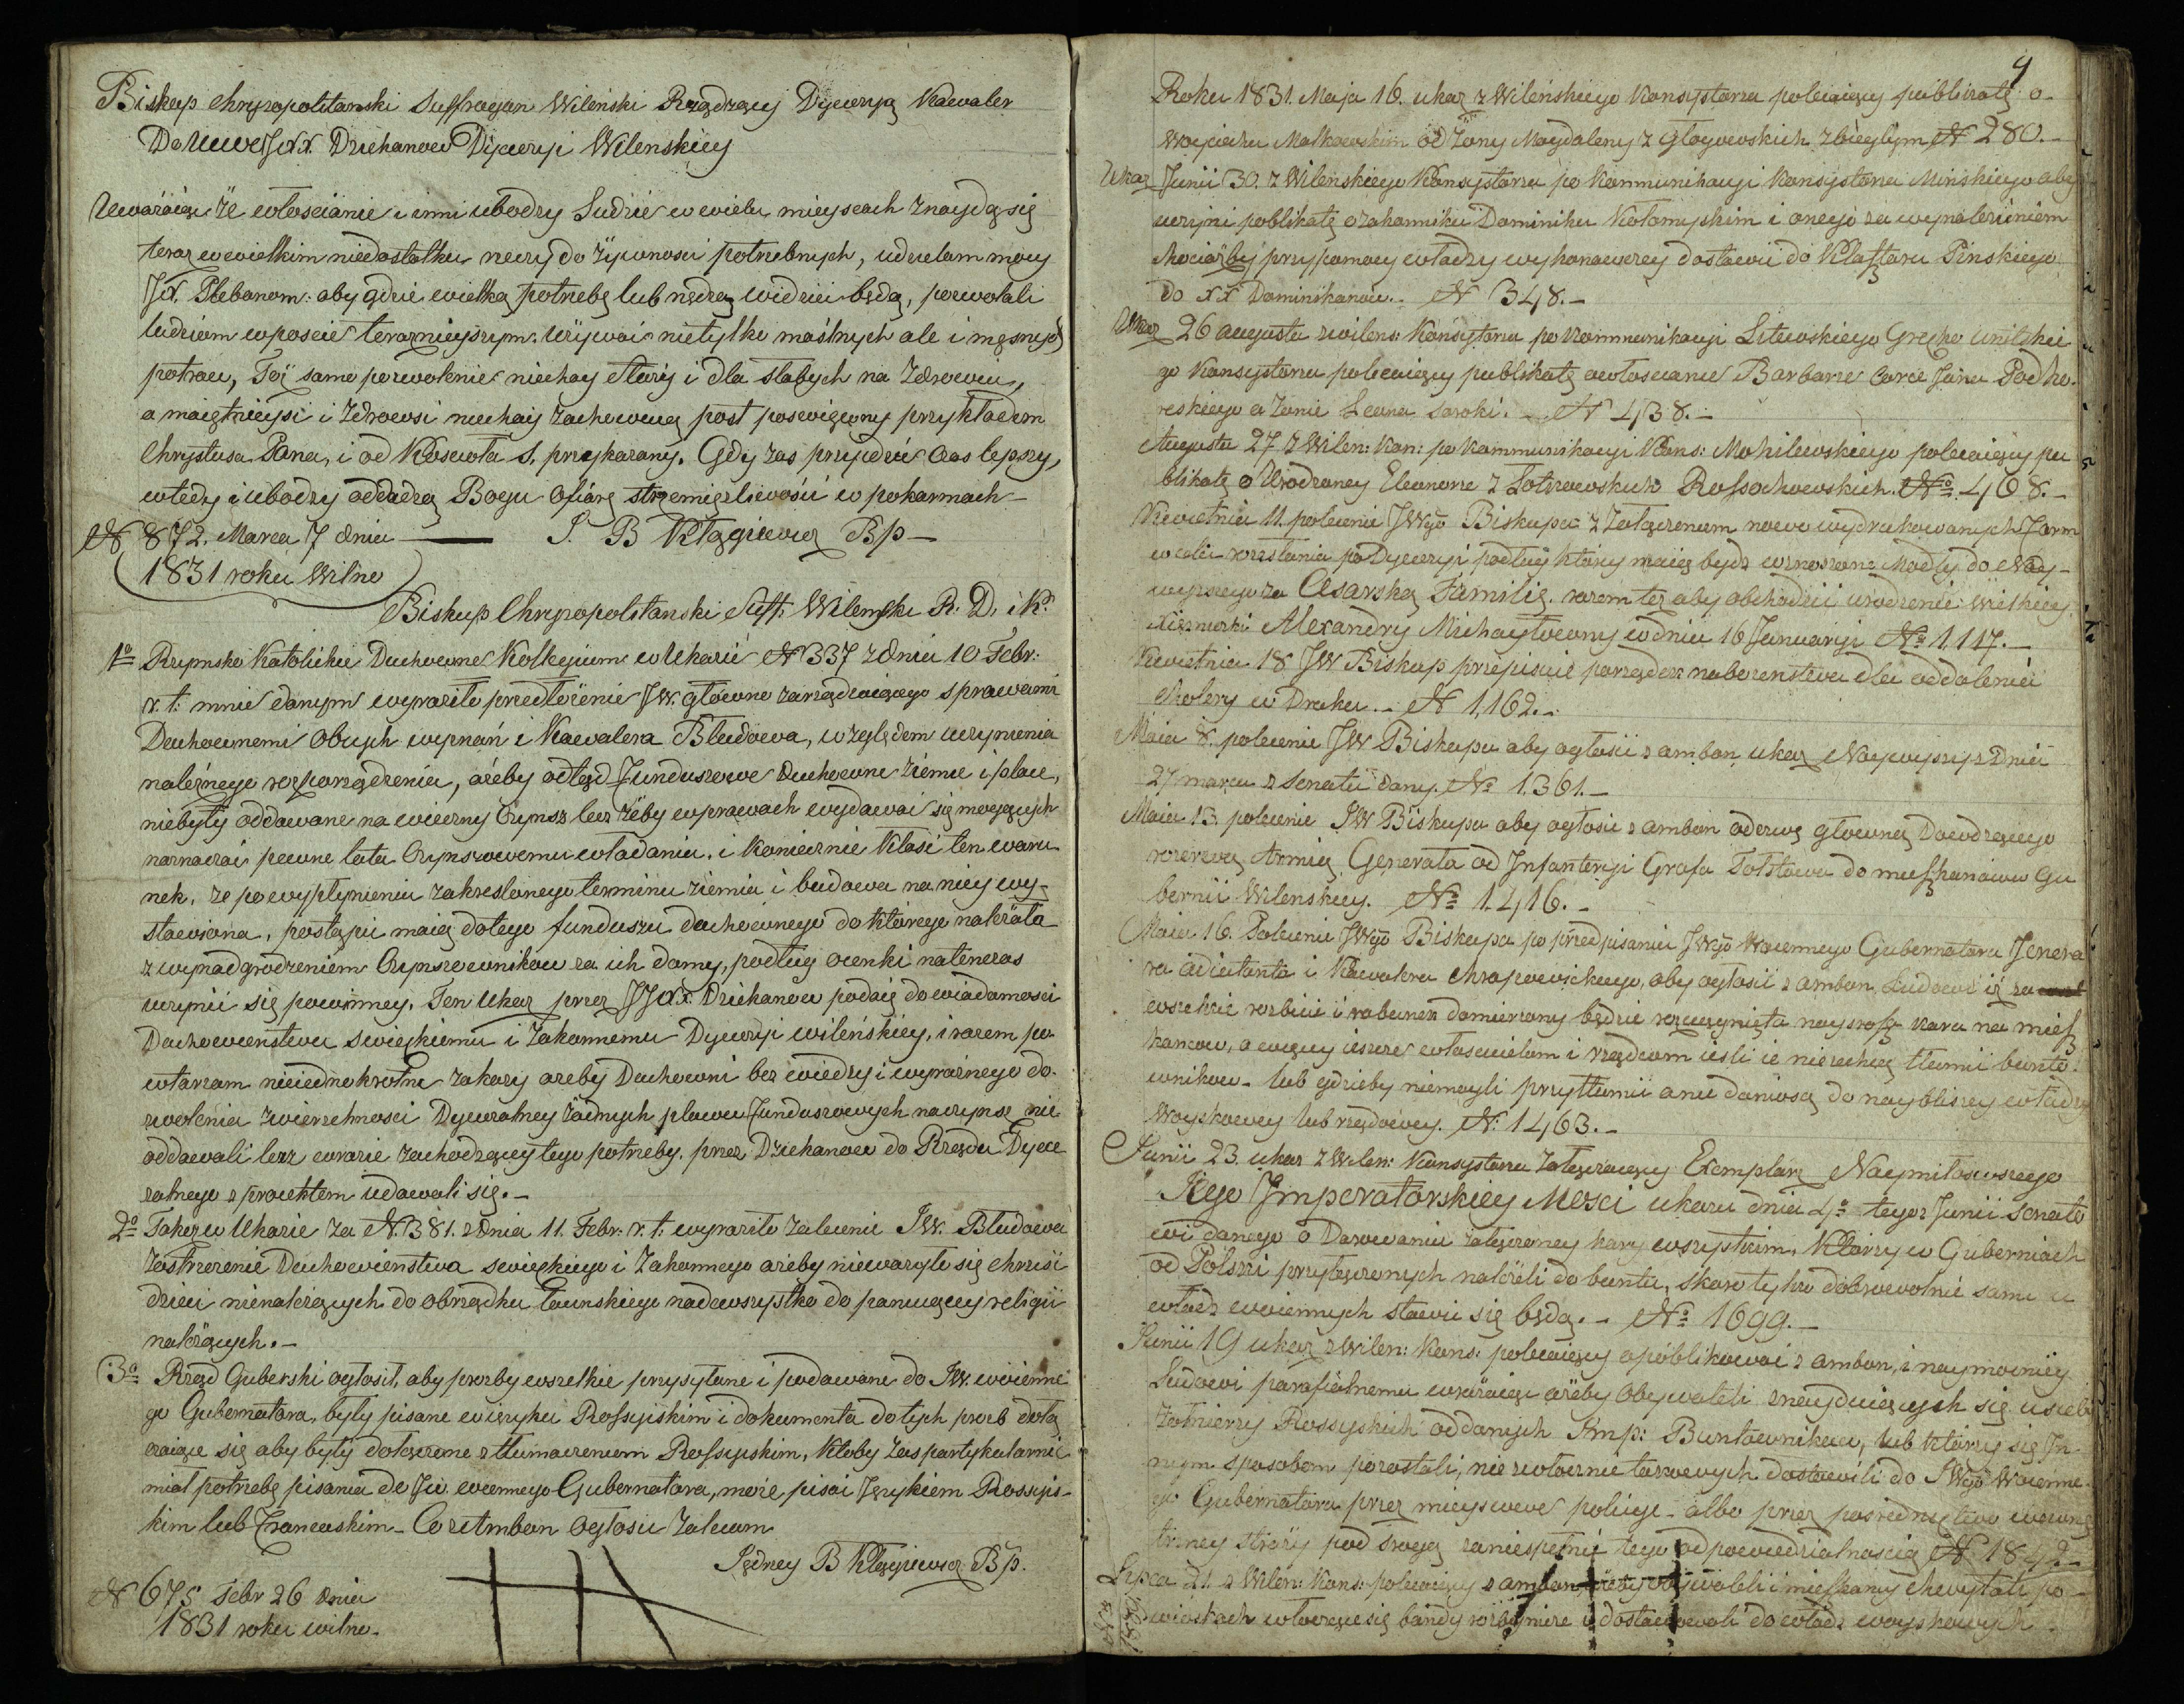 Biskup Chryzopolitanski Suffragan Wileński Rządzący Dyecezyą Kawaler
Do WWJXX. Dziekanow Dyecezyi Wilenskiey
Uważaiąc że włoscianie i inni ubodzy Ludzie w wielu mieyscach znaydą się
teraz w wielkim niedostatku rzeczy do żywnosci potrzebnych, udzielam mocy
JX. Plebanom: aby gdzie wielką potrzebę lub nędzę widzieć będą, pozwolali
ludziom w poscie teraznieyszym używać nietylko maślnych ale i męsnych
potraw, Toż samo pozwolenie niechay służy i dla słabych na Zdrowiu,
a maiętnieysi i Zdrowsi niechay zachowuią post poswięcony przykładem
Chrystusa Pana, i od Koscioła S. przykazany. Gdy zas przyydzie czas lepszy,
wtedy i ubodzy oddadzą Bogu ofiarę strzemięzliwości w pokarmach
N 872. Marca 7 dnia J. B Kłągiewicz Bp
1831 roku Wilno
Biskup Chryzopolitanski Suff. Wilenski R. D. i K.
1o Rzymsko Katolickie Duchowne Kollegium w Ukazie N 337 z dnia 10 Febr:
r. t. mnie danym wyraziło przedłożenie JW. głowno zarządzaiącego sprawami
Duchownemi obcych wyznań i Kawalera Błudowa, względem uczynienia
należnego rozporządzenia, ażeby odtąd Funduszowe Duchowne ziemie i place,
niebyły oddawane na wieczny Czynsz lecz żeby w prawach wydawać się mogących
naznaczać pewne lata Czynszowemu władaniu, i koniecznie Kłaść ten waru
nek, że po wypłynieniu zakreslonego terminu ziemia i budowa na niey wy-
stawiona, postąpić maią do tego funduszu duchownego do którego należała
z wynadgrodzeniem Czynszownikow za ich domy, podług ocenki natenczas
uczynić się powinney. Ten Ukaz przez JJXX. Dziekanow podaię do wiadomosci
Duchowienstwu Swieckiemu i Zakonnemu Dyecezyi wileńskiey, i razem po
wtarzam nieiednokrotne zakazy ażeby Duchowni bez wiedzy i wyraźnego do-
zwolenia zwierzchnosci Dyecezalney żadnych placow Funduszowych na czynsz nie
oddawali lecz w razie zachodzącey tego potrzeby, przez Dziekanow do Rządu Dyece
zalnego z proiektem udawali się.
2o Takoż w Ukazie za N. 381. z dnia 11. Febr: r. t. wyraziło zalecenie JW. Błudowa
Zastrzezenie Duchowienstwa swieckiego i Zakonnego ażeby nieważyło się chrzcić
dzieci nienależących do obrządku Łacinskiego nadewszystko do panuiącey religii
należących.
3o Rząd Guberski ogłosił, aby prozby wszelkie przysyłane i podawane do JW. woienne
go Gubernatora, były pisane w ięzyku Rossyiskim i dokumenta do tych prozb dołą
czaiące się aby były dołączone z tłumaczeniem Rossyiskim, Ktoby zas partykularnie
miał potrzebę pisania do JW. woiennego Gubernatora, może pisać Językiem Rossyis-
kim lub Francuskim. Co z Ambon ogłosić zalecam
Jędrzey B Kłągiewicz Bp.
N 675 Febr 26 dnia
1831 roku wilno.
9
Roku 1831. Maja 16. ukaz z Wileńskiego Konsystorza polecaiący publikatę o
Woyciechu Małkowskim od żony Magdaleny z Głogowskich zbiegłym N 280.
Ukaz Junii 30. z Wileńskiego Konsystorza po Kommunikacyi Konsystorza Mińskiego aby
uczynić publikatę o zakonniku Dominiku Kołomyskim i onego za wynalezieniem
chociażby przy pomocy władzy wykonawczey dostawić do Klasztoru Pinskiego
do XX Dominikanow. N 348.
Ukaz 26 augusta z wilens: Konsystorza po Kommunikacyi Litewskiego Greko unitskie
go Konsystorza polecaiący publikatę o włosciance Barbarze corce Jana Podho-
reskiego a żonie Leona Soroki. N 438.
Augusta 27 z Wilen: Kon: po Kommunikacyi Kons: Mohilewskiego polecaiący pu
blikatę o Urodzoney Eleonorze z Rossochowskich. No 468.
Kwietnia 11. polecenie JWgo Biskupa z Załączeniem nowo wydrukowanych Form
w celu rozesłania po Dyecezyi podług ktory maią bydz wznoszone Modły do Nay-
wyzszego za Cesarską Familię. razem też aby obchodzić urodzenie Wielkiey
Xiężniczki Alexandry Michayłowny w dniu 16 Januaryi No 1,117.
Kwietnia 18 JW Biskup przepisuie porządek nabożenstwa dla oddalenia
cholery w Druku. N 1,162.
Maia 8. polecenie JW Biskupa aby ogłosić z ambon ukaz Naywyzszy z dnia
27 marca z Senatu dany. No 1.361.
Maia 13. polecenie JW Biskupa aby ogłosić z ambon odezwę głowną Dowodzącego
rezerwą Armią Generała od Infanteryi Grafa Tołstowa do mieszkancow Gu
bernii Wilenskiey. No 1.416.
Maia 16. Polecenie JWgo Biskupa po przedpisaniu JWgo Woiennego Gubernatora Jenera
ra adiutanta i Kawalera Chrapowickiego, aby ogłosić z ambon Ludowi iż za
wszelkie rozbicie i rabunek domierzony będzie rozciągnięta naysrozsza kara na miesz
kancow, a więcey ieszcze włascicielom i rządcom iesli ie niezechcą tłumić bunto-
wnikow lub gdzieby niemogli przytłumić a nie doniosą do naybliszey władzy
Woyskowey lub rządowey. No 1463.
Junii 23. ukaz z Wilen: Konsystorza załączaiący Exemplarz Naymiłosciwszego
Jego Imperatorskiey Mosci ukazu dnia 4o tegoż Junii Senato
wi danego o Darowaniu załączoney kary wszystkim, Którzy w Guberniach
od Polski przyłączonych należeli do buntu, skoro tylko dobrowolnie sami u
władz woiennych stawić się będą. No 1699.
Junii 19 ukaz z Wilen: Kons: polecaiący opublikować z ambon, i naymocniey
Ludowi parafialnemu wrażaiąc ażeby obywateli znayduiących się u siebie
Żołnierzy Rossyskich oddanych Imp: Buntownikow, lub którzy się In-
nym sposobem pozostali, niezwłocznie takowych dostawili do JWgo Woienne-
go Gubernatora przez mieyscowe policye albo przez posrednictwo wewnę
trzney Straży pod srogą zaniespełnie tego odpowiedzialnoscią N 1842
Lipca 21. z Wilen: Kons: polecaiący z ambon, ażeby obywateli i mieszkancy chwytali po
wioskach włoczące się bandy rozboynicze i dostawowali do władz woyskowych.